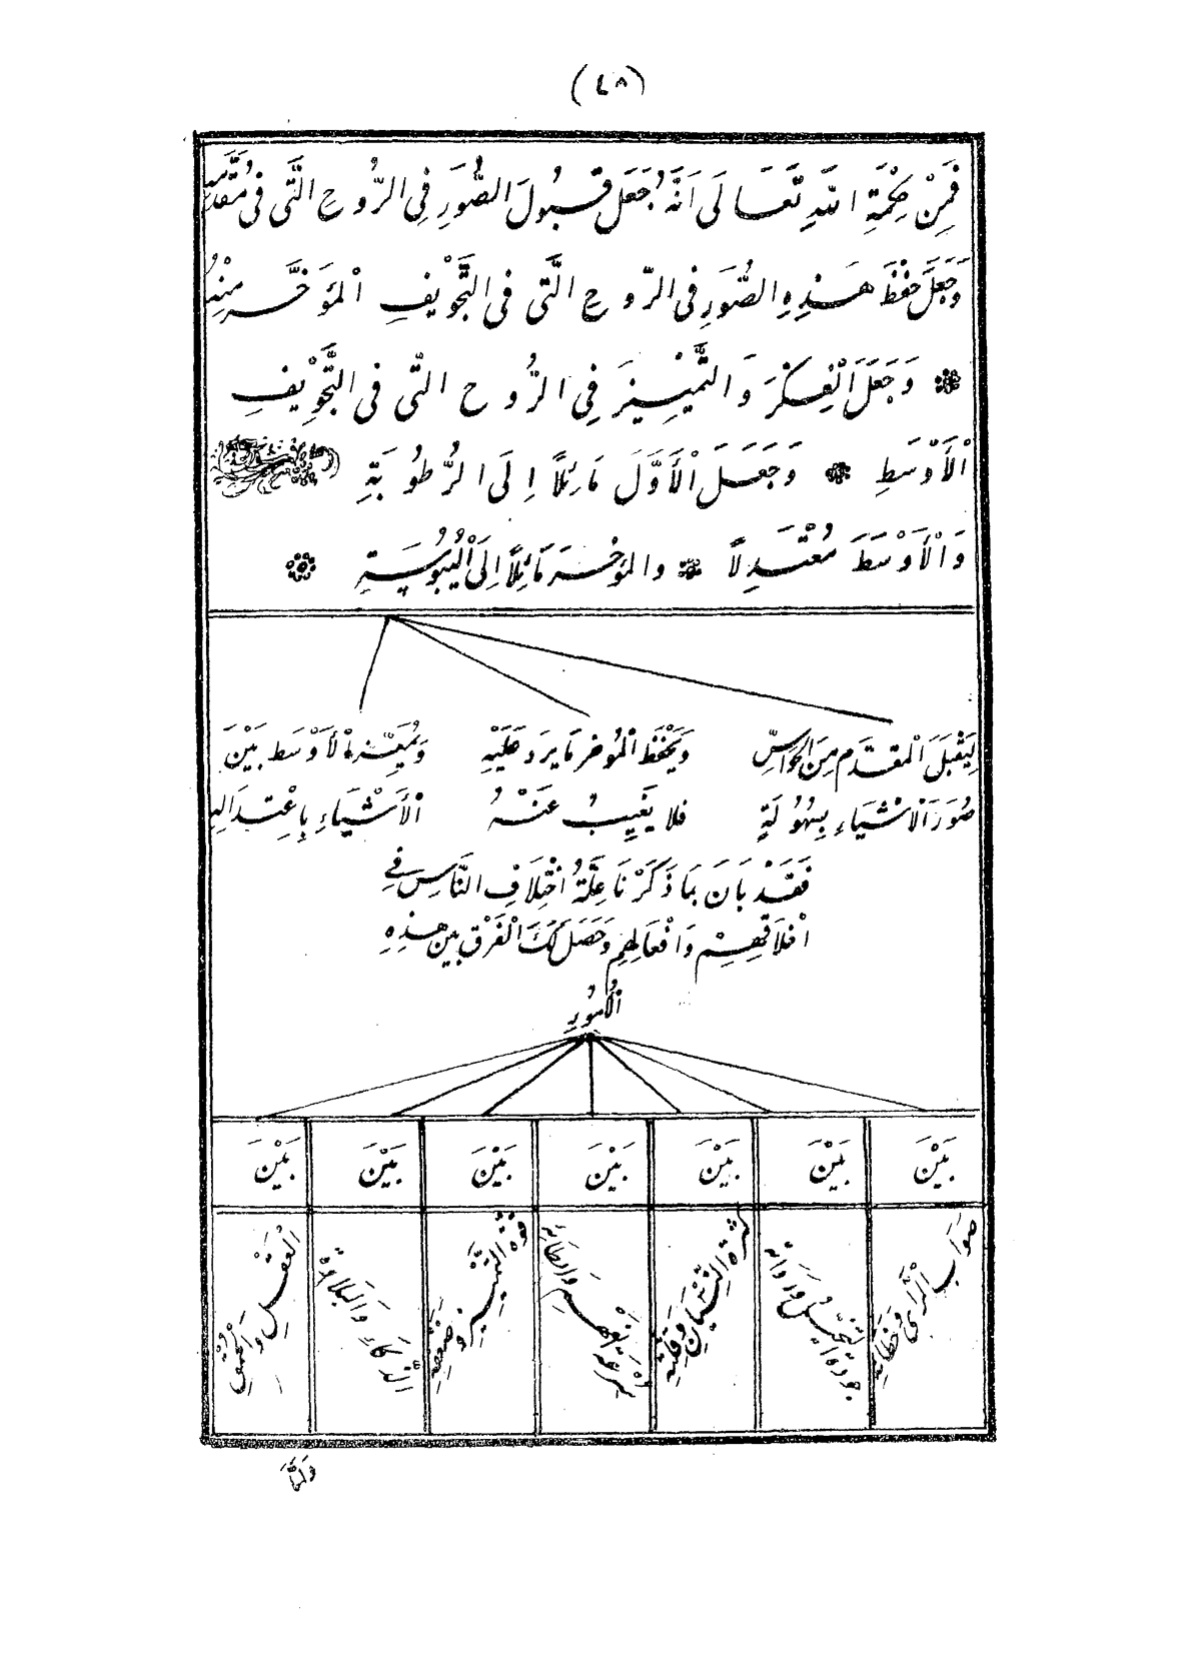 (٤٨)
فَمِنْ حِكْمَةِ اللّٰهِ تَعَالَى اَنَّهُ جَعَلَ قَبُولَ الصُّوَرِ فِى الرُّوحِ الَّتِى فِى مُقَدَّمِهِ
وَجَعَلَ حِفْظَ هَذِهِ الصُّوَرِ فِى الرّوحِ الَّتِى فِى التَّجْوِيْفِ الْمُؤَخَّرِ مِنْهُ
❋ وَجَعَلَ الْفِكْرَ وَالتَّمْيِيْزَ فِى الرُّوحِ الَّتِى فِى التَّجْوِيْفِ
الْأَوْسَطِ ❋ وَجَعَلَ الْأَوَّلَ مَائِلًا اِلَى الرُّطُوبَةِ
وَالْأَوْسَطَ مُعْتَدِلًا ❋ وَالمؤخرَ مَائِلًا اِلَى الْيُبُوسَةِ ❋
لِيَقْبَلَ الْمقَدَم مِنَ الْحَوَاسِّ وَيَحْفَظَ الْمُوخر مَا يَرِد عَلَيْهِ وَيُمَيِّزَ الْأَوْسَط بَيْنَ
صُوَرَ الْاشْيَاءِ بِسُهُولَةٍ فلا يَغِيبُ عَنْهُ الْأَشْيَاءِ بِاِعْتِدَالِهِ
فَقَدْ بَانَ بِمَا ذَكَرْنَا عِلَّةُ اخْتِلَافِ النَّاسِ فِى
اخْلَاقِهِمْ وَافْعَالِهِمْ وَحَصَلَ لَكَ الْفَرْق بين هذِهِ
الْأُمُورِ
بَيْنَ بَيْنَ بَيْنَ بَيْنَ بَيْنَ بَيْنَ بَيْنَ
صَوَابِ الرَّأْىِ وَخَطَائِهِ
جودة التَّخَيُّلِ وَرَدَاتِهِ
كثرة النِّسْيَانِ وَقِلَّتِهِ
سُرْعَةِ الْفَهْمِ وَابطَائِهِ
قوة التَّمْيِيزِ وَضَعْفِهِ
الذَّكَاءِ وَالبَلَادَة
الْعَقْلِ وَالْحُمْقِ
وَلَمَّا